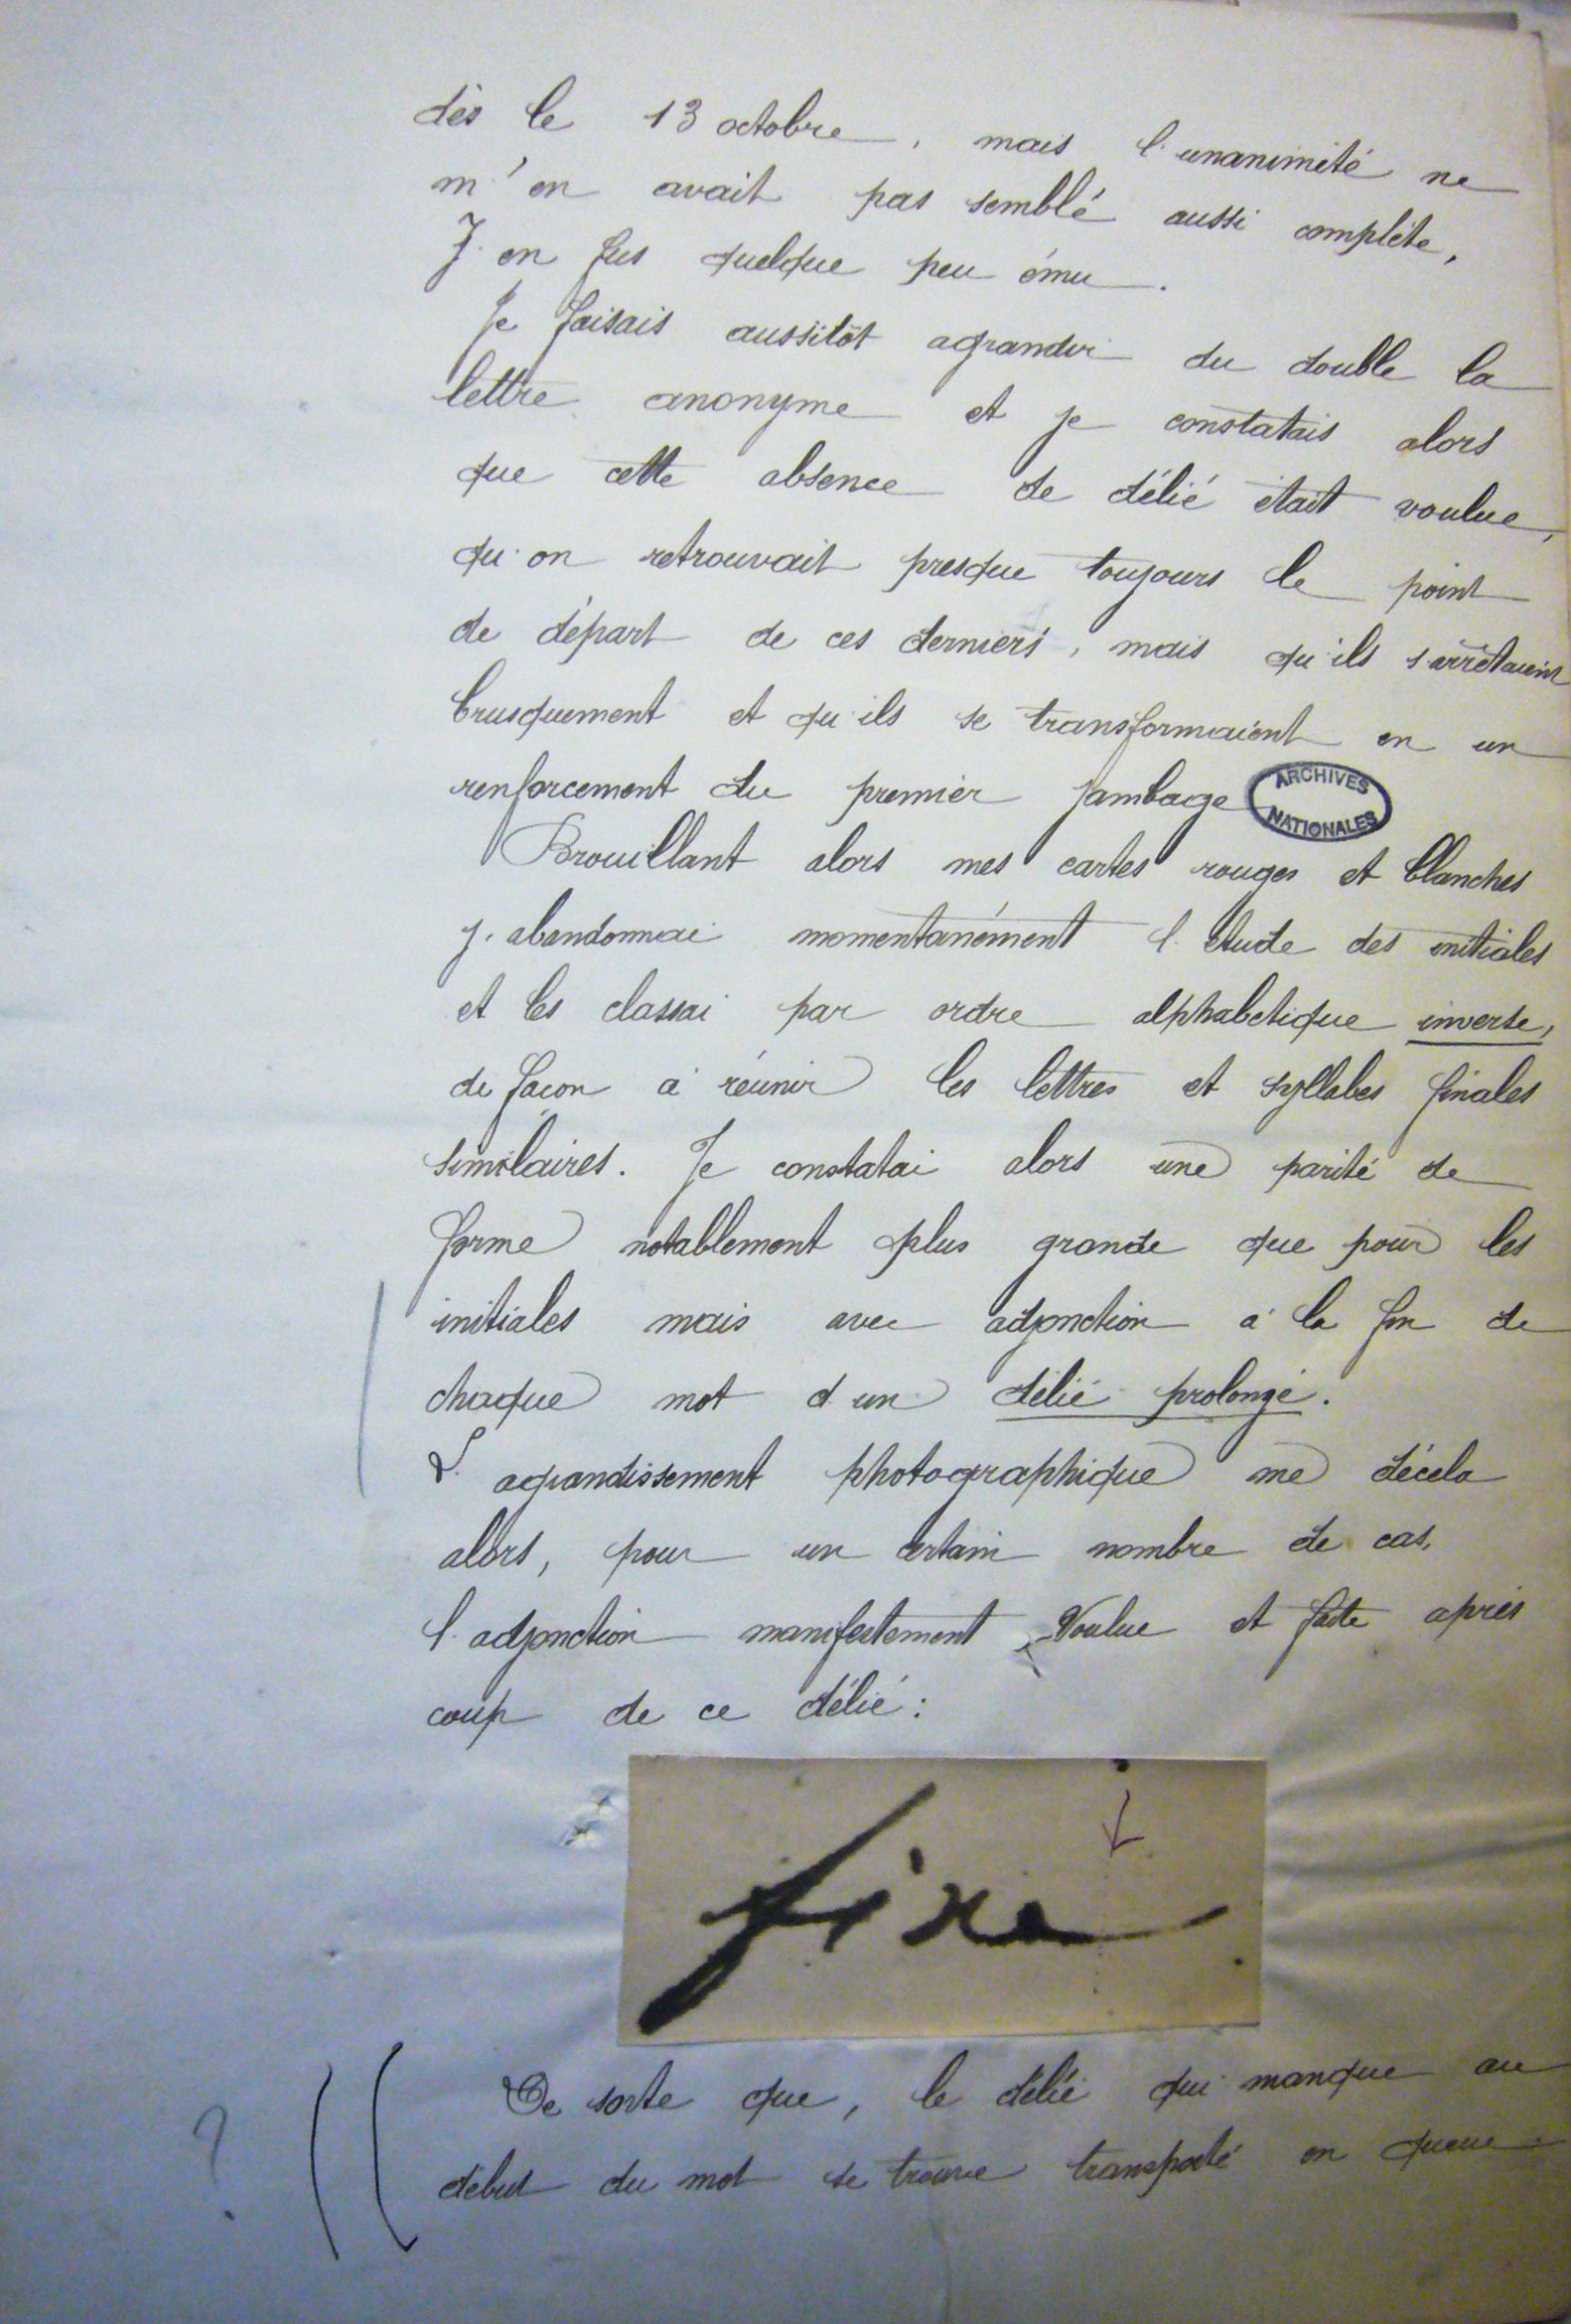 dès le 13 octobre, mais l'unanimité ne
m'en avait pas semblé aussi complète,
J'en fus quelque peu ému.
Je faisais aussitôt agrandir du double la
lettre anonyme et je constatais alors
que cette absence de délié était voulue,
qu'on retrouvait presque toujours le point
de départ de ces derniers, mais qu'ils s'arrêtaient
brusquement et qu'ils se transformaient en un
renforcement du premier jambage
ARCHIVES
NATIONALES
Brouillant alors mes cartes rouges et blanches
j'abandonnai momentanément l'étude des initiales
et les classai par ordre alphabetique inverse,
de façon à réunir les lettres et syllabes finales
similaires. Je constatai alors une parité de
forme notablement plus grande que pour les
initiales mais avec adjonction à la fin de
chaque mot d'un délié prolongé.
L'agrandissement photographique me décela
alors, pour un certain nombre de cas,
l'adjonction manifestement voulue et faite après
coup de ce délié :
fixe
De sorte que, le délié qui manque au
? début du mot se trouve transporté en queue